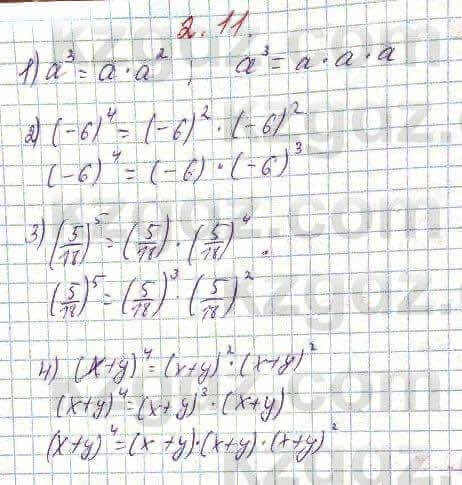 2.11.
1) a³ = a · a² ; a³ = a · a · a
2) (-6)⁴ = (-6)² · (-6)²
(-6)⁴ = (-6) · (-6)³
3) (5/18)⁵ = (5/18) · (5/18)⁴
(5/18)⁵ = (5/18)³ · (5/18)²
4) (x+y)⁴ = (x+y)² · (x+y)²
(x+y)⁴ = (x+y)³ · (x+y)
(x+y)⁴ = (x+y) · (x+y) · (x+y)²